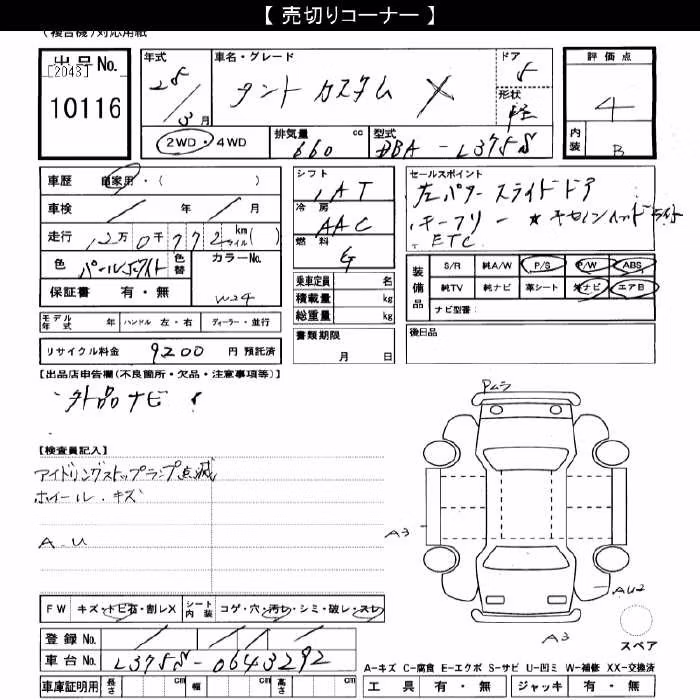 【 売切りコーナー 】
出品No.
[2043]
10116
年式
28/3月
車名・グレード
タント カスタム X
ドア
5
形状
軽
評価点
4
内装
B
2WD・4WD
排気量 cc
660
型式
DBA-L375S
車歴 自家用・( )
車検 年 月
走行 12万0千772 km マイル( )
色 パールホワイト 色替
カラーNo.
W24
保証書 有・無
シフト
IAT
冷房
AAC
燃料
G
乗車定員 名
積載量 kg
総重量 kg
書類期限
月 日
セールスポイント
左パワースライドドア
キーフリー ★キセノンヘッドライト
ETC
装備品
S/R 純A/W P/S P/W ABS
純TV 純ナビ 革シート 外ナビ エアB
ナビ型番:
モデル年式 年 ハンドル 左・右 ディーラー・並行
後日品
リサイクル料金 9200 円 預託済
【出品店申告欄(不良箇所・欠品・注意事項等)】
外品ナビ
【検査員記入】
アイドリングストップランプ点滅
ホイール・キズ
A-U
Pムラ
A3
AU2
A3
スペア
FW キズ・トビ石・割レX
シート内装 コゲ・穴・汚レ・シミ・破レ・スレ
登録No.
車台No. L375S-0643292
車庫証明用 長さ cm 幅 cm 高さ cm
A-キズ C-腐食 E-エクボ S-サビ U-凹ミ W-補修 XX-交換済
工具 有・無 ジャッキ 有・無